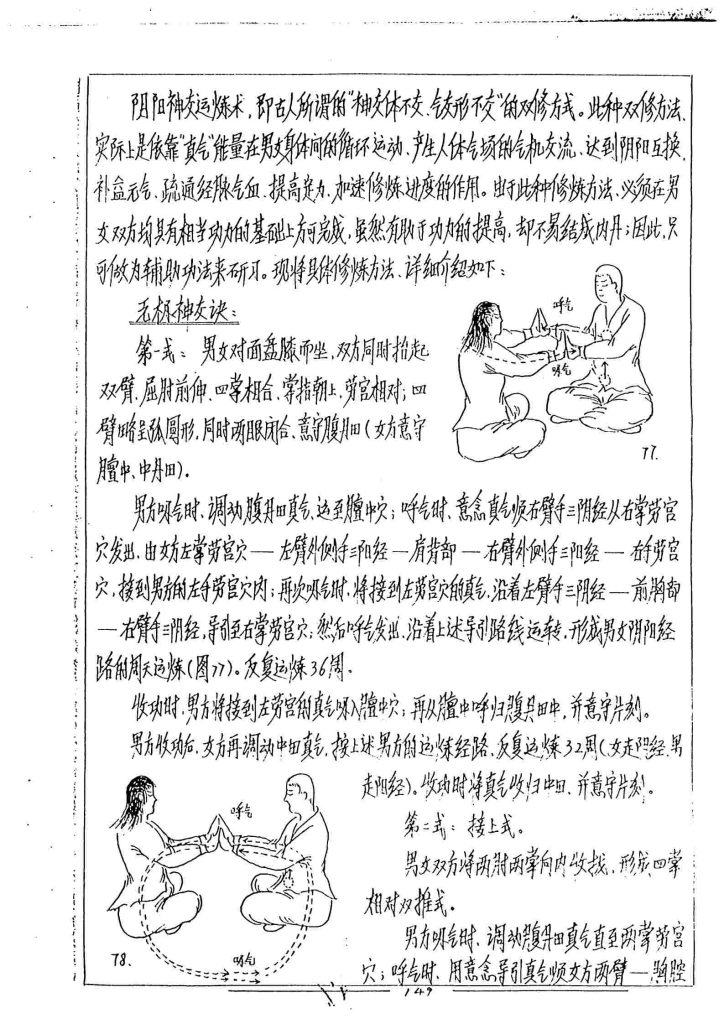 阴阳神交运炼术，即古人所谓的“神交体不交、气交形不交”的双修方式。此种双修方法、
实际上是依靠“真气”能量在男女身体间的循环运动、产生人体气场的气机交流、达到阴阳互换、
补益元气、疏通经脉气血、提高定力、加速修炼进度的作用。由于此种修炼方法、必须在男
女双方均具有相当功力的基础上方可完成，虽然有助于功力的提高，却不易结成内丹；因此，只
可做为辅助功法来研习。现将具体修炼方法、详细介绍如下：
无极神交诀：
第一式：男女对面盘膝而坐，双方同时抬起
双臂、屈肘前伸、四掌相合、掌指朝上、劳宫相对；四
臂略呈弧圆形，同时两眼闭合、意守腹丹田（女方意守
膻中、中丹田）。
呼气
吸气
77.
男方吸气时、调动腹丹田真气、达至膻中穴；呼气时、意念真气顺右臂手三阴经从右掌劳宫
穴发出、由女方左掌劳宫穴—左臂外侧手三阳经—肩背部—右臂外侧手三阳经—右手劳宫
穴，接到男方的左手劳宫穴内；再次吸气时、将接到左劳宫穴的真气、沿着左臂手三阴经—前胸部
—右臂手三阴经，导引至右掌劳宫穴；然后呼气发出、沿着上述导引路线运转，形成男女阴阳经
路的周天运炼（图77）。反复运炼36周.
收功时，男方将接到左劳宫的真气吸入膻中穴；再从膻中呼归腹丹田中，并意守片刻。
男方收功后，女方再调动中田真气，按上述男方的运炼经路、反复运炼32周（女走阴经、男
走阳经）。收功时将真气收归中田、并意守片刻。
第二式：接上式。
男女双方将两肘两掌向内收拢，形成四掌
相对双推式。
男方吸气时、调动腹丹田真气直至两掌劳宫
穴；呼气时、用意念导引真气顺女方两臂—胸腔
呼气
吸气
78.
149